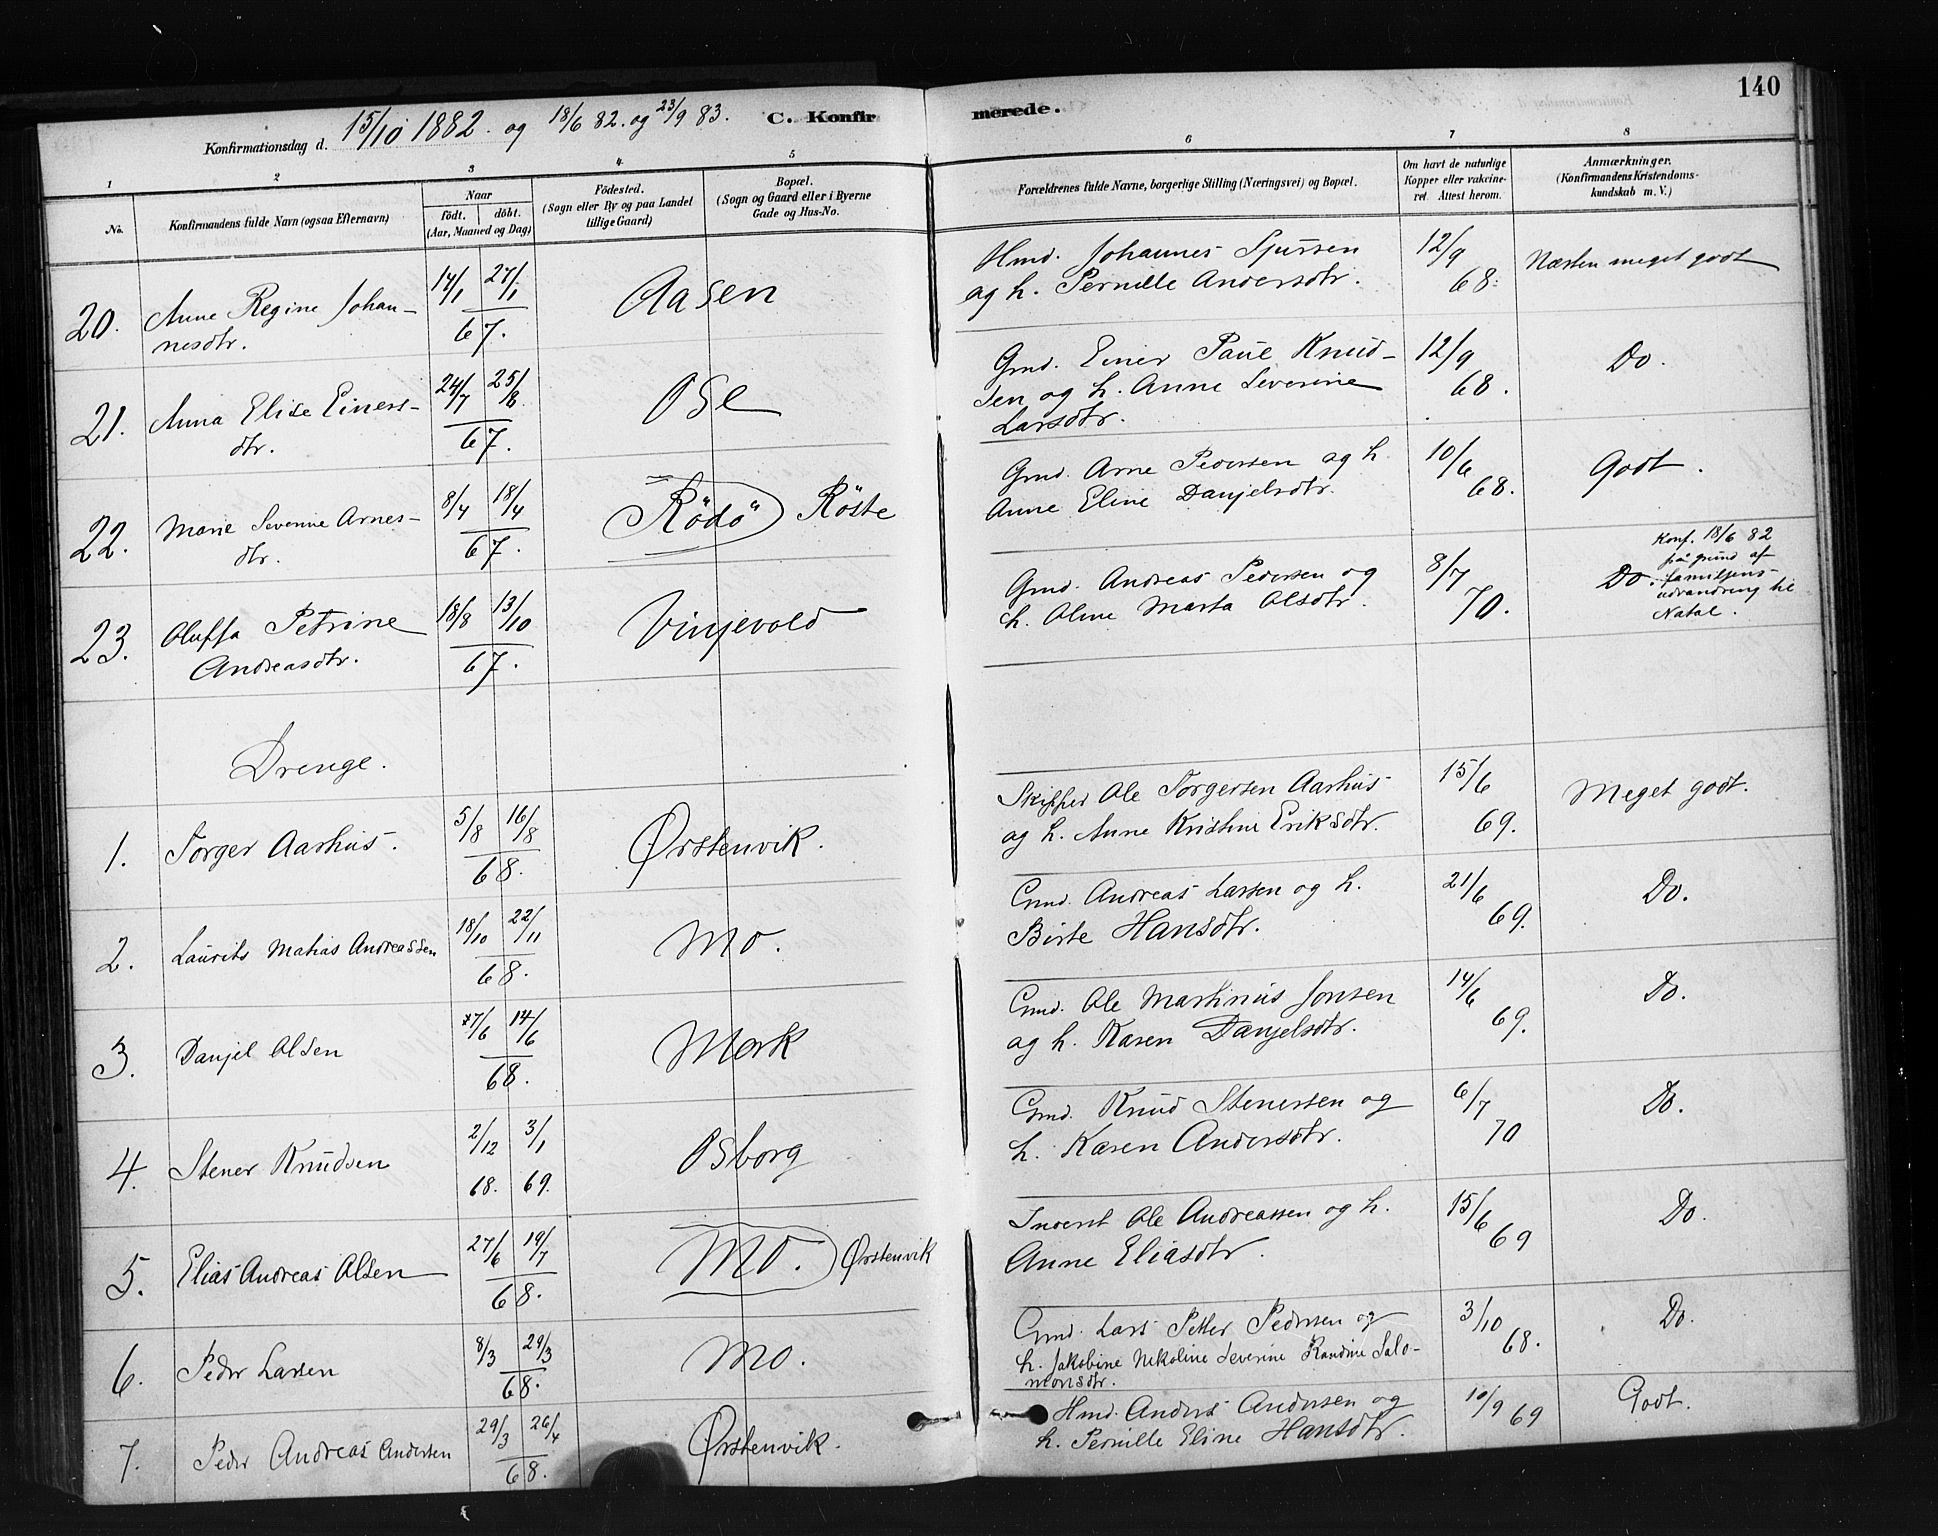 140
Konfirmationsdag d. 15/10 1882. og 18/6 82. og 23/9 83. C. Konfirmerede.
1 2 3 4 5 6 7 8
No. Konfirmandens fulde Navn (ogsaa Efternavn)
Naar
födt. döbt.
(Aar, Maaned og Dag)
Födested.
(Sogn eller By og paa Landet
tillige Gaard)
Bopæl.
(Sogn og Gaard eller i Byerne
Gade og Hus-No.
Forældrenes fulde Navne, borgerlige Stilling (Næringsvei) og Bopæl.
Om havt de naturlige
Kopper eller vakcine-
ret. Attest herom.
Anmærkninger.
(Konfirmandens Kristendoms-
kundskab m. V.)
20. Anne Regine Johan-
nesdtr.
14/1 27/1
67.
Aasen
Hmd. Johannes Sjursen
og h. Pernille Andersdtr.
12/9
68.
Næsten meget godt
21. Anna Elise Einers-
dtr.
24/7 25/8
67.
Ose
Gmd. Einer Paul Knud-
sen og h. Anne Severine
Larsdtr.
12/9
68.
Do.
22. Marie Severine Arnes-
dtr.
8/4 18/4
67.
Rödö Röste
Gmd. Arne Pedersen og h.
Anne Eline Danjelsdtr.
10/6
68.
Godt.
23. Oluffa Petrine
Andreasdtr.
18/8 13/10
67.
Vinjevold
Gmd. Andreas Pedersen og
h. Oline Marta Olsdtr.
8/7
70.
Do.
Konf. 18/6 82
på grund af
familjens
udvandring til
Natal.
Drenge.
1. Torger Aarhus.
5/8 16/8
68.
Ørstenvik.
Skipper Ole Torgersen Aarhus
og h. Anne Kristine Eriksdtr.
15/6
69.
Meget godt.
2. Laurits Matias Andreassen
18/10 22/11
68.
Mo.
Gmd. Andreas Larsen og h.
Birte Hansdtr.
21/6
69.
Do.
3. Danjel Olsen
7/6 14/6
68.
Mork
Gmd. Ole Martinus Jonsen
og h. Karen Danjelsdtr.
14/6
69.
Do.
4. Stener Knudsen
2/12 3/1
68. 69.
Osborg
Gmd. Knud Stenersen og
h. Karen Andersdtr.
6/7
70
Do.
5. Elias Andreas Olsen
27/6 19/7
68.
Mo. Ørstenvik
Inderst Ole Andreassen og h.
Anne Eliasdtr.
15/6
69
Do.
6. Peder Larsen
8/3 29/3
68.
Mo.
Gmd. Lars Petter Pedersen og
h. Jakobine Nikoline Severine Randine Salo-
monsdtr.
3/10
68.
Do.
7. Peder Andreas Andersen
29/3 26/4
68.
Ørstenvik.
Hmd. Anders Andersen og
h. Pernille Eline Hansdtr.
10/9 69
Godt.